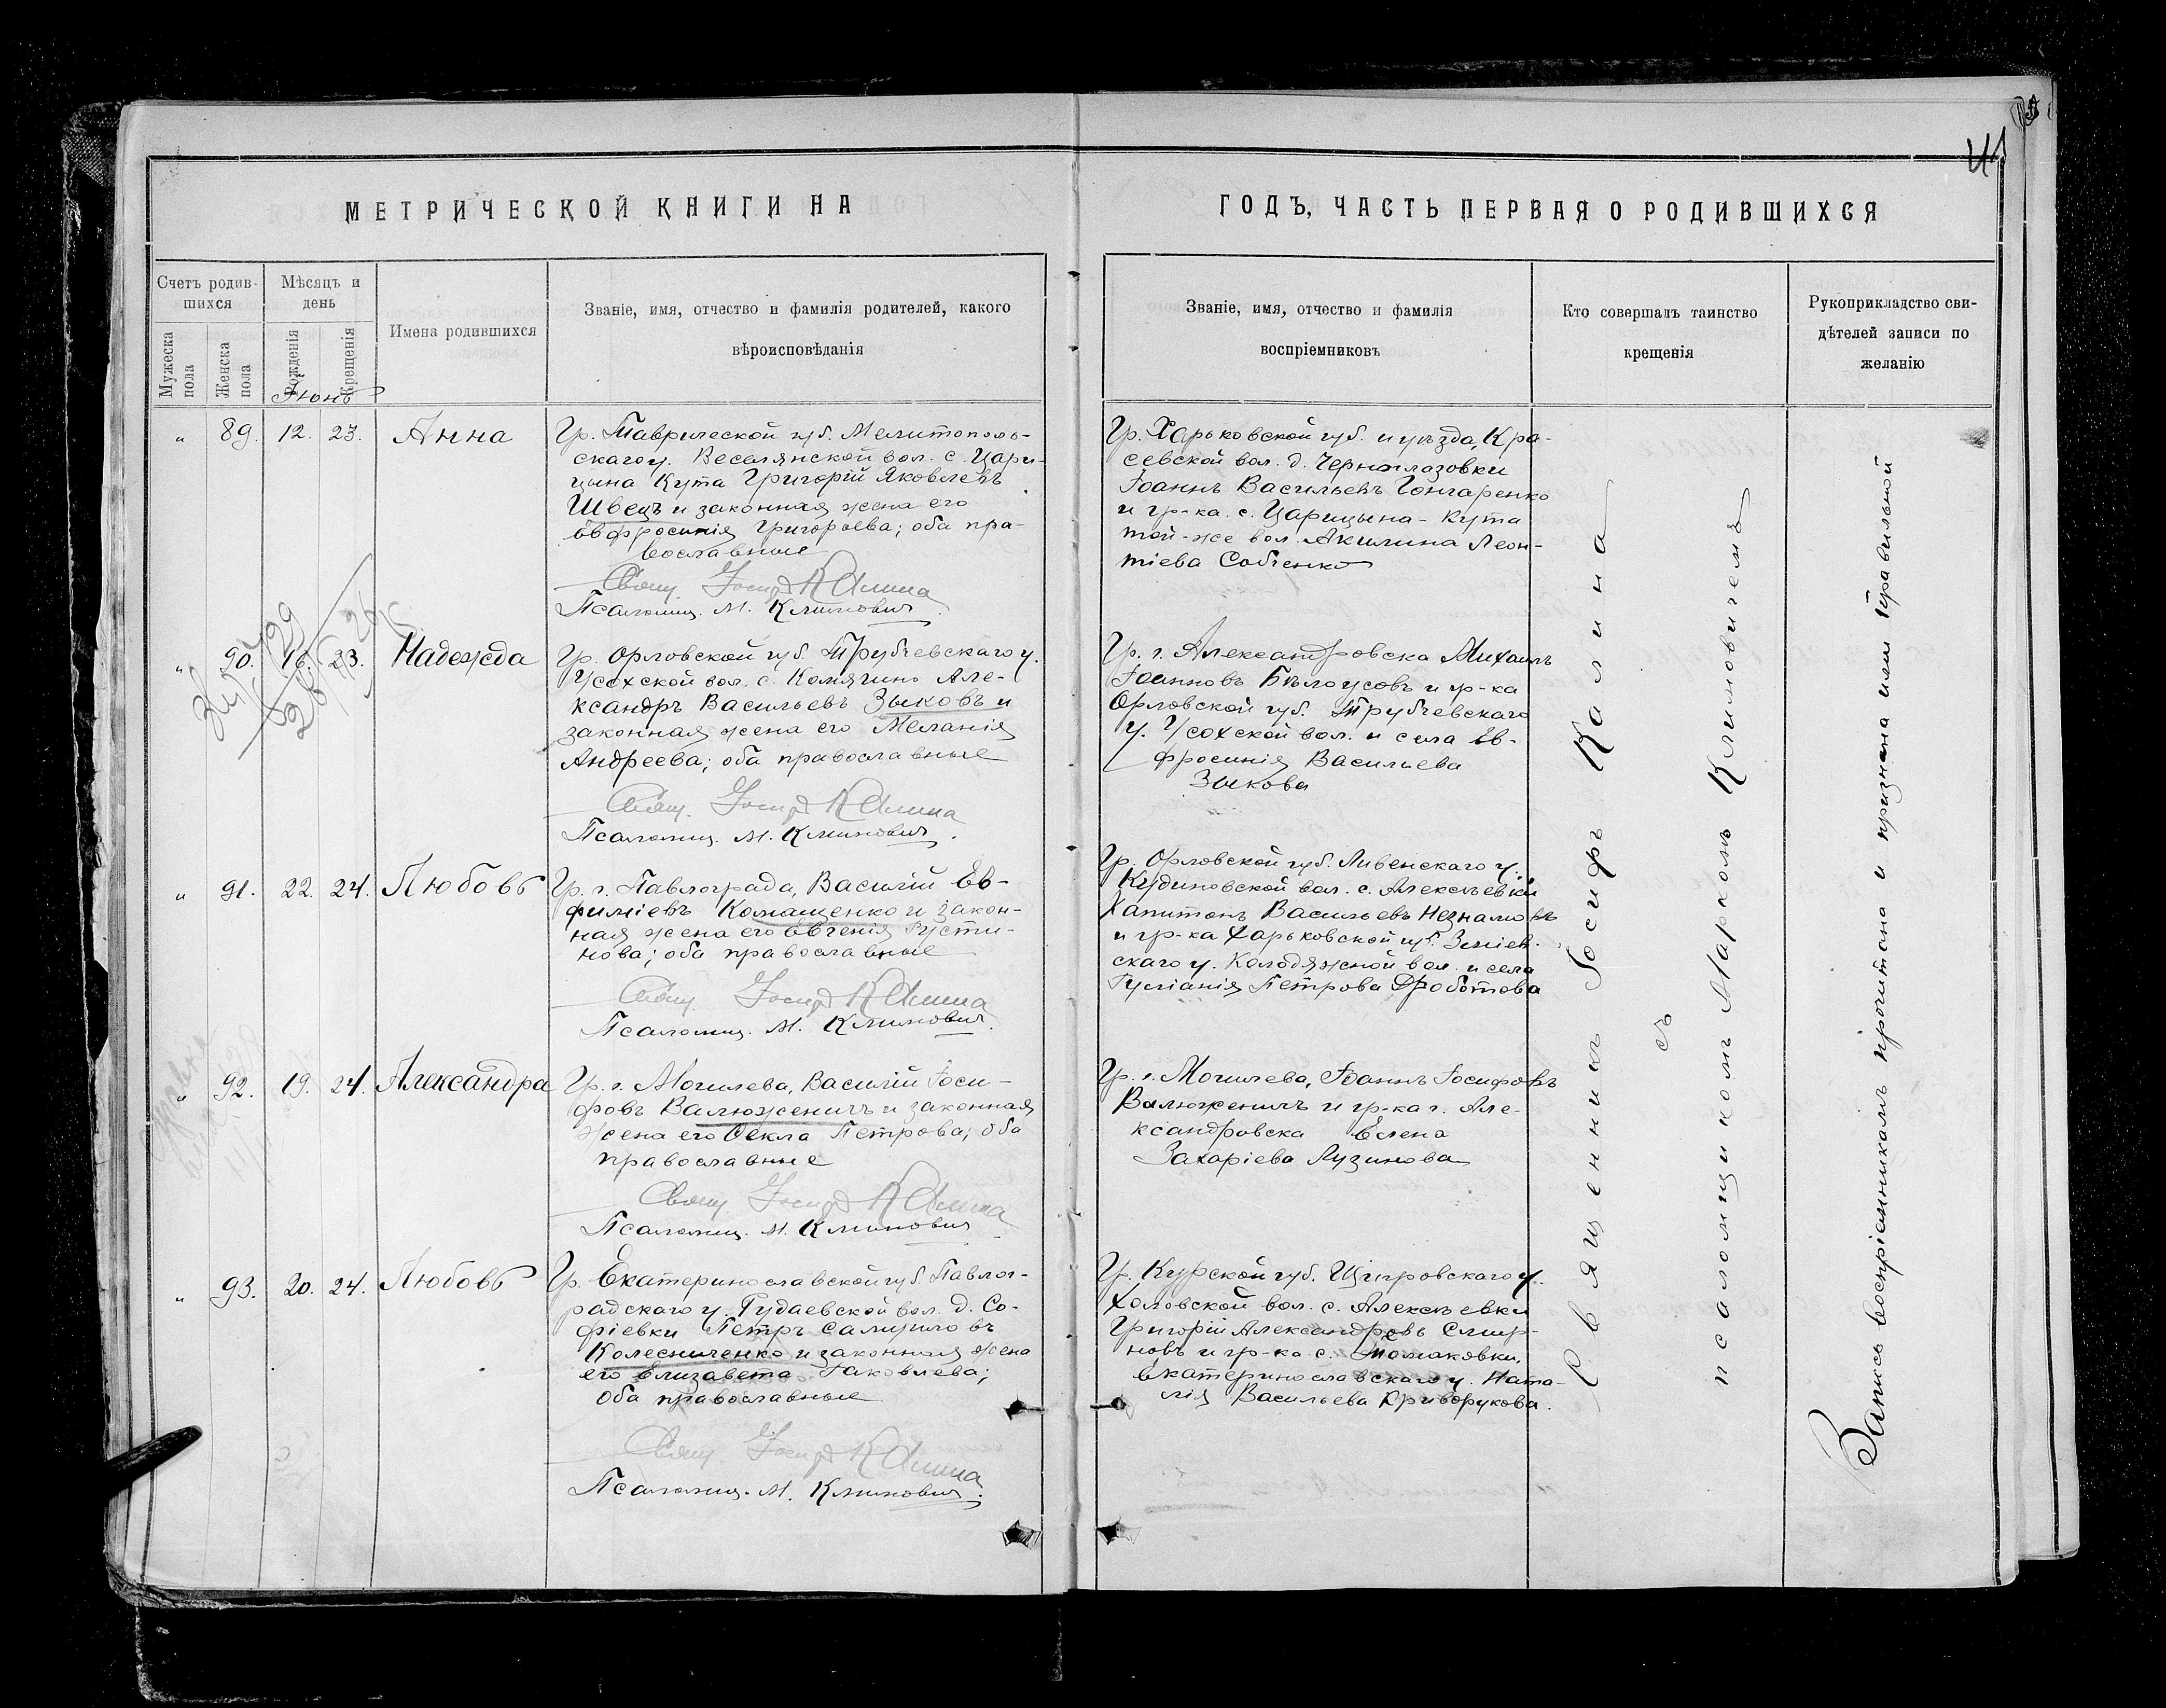 МЕТРИЧЕСКОЙ КНИГИ НА
ГОДЪ, ЧАСТЬ ПЕРВАЯ О РОДИВШИХСЯ
Счетъ родив-
шихся
Мужеска
пола
Женска
пола
Мѣсяцъ и
день
Рожденія
Крещенія
Имена родившихся
Званіе, имя, отчество и фамилія родителей, какого
вѣроисповѣданія
Званіе, имя, отчество и фамилія
воспріемниковъ
Кто совершалъ таинство
крещенія
Рукоприкладство сви-
дѣтелей записи по
желанію
Іюнь
„ 89. 12. 23. Анна
Гр. Таврической губ. Мелитополь-
скаго у. Веселянской вол. с. Цари-
цына Кута Григорій Яковлевъ
Швецъ и законная жена его
Евфросинія Григорьева; оба пра-
вославные
Свящ. Іосифъ Калина
Псаломщ. М. Климович.
Гр. Харьковской губ. и уѣзда, Кра-
севской вол. д. Черноглазовки
Іоаннъ Васильевъ Гончаренко
и гр-ка с. Царицына-Кута
той-же вол. Акилина Леон-
тіева Собченко
„ 90. 16. 23. Надежда
Гр. Орловской губ. Трубчевскаго у.
Усохской вол. с. Комягино Але-
ксандръ Васильевъ Зыковъ и
законная жена его Меланія
Андреева; оба православные
Свящ. Іосифъ Калина
Псаломщ. М. Климович.
Гр. г. Александровска Михаилъ
Іоанновъ Бѣлоусовъ и гр-ка
Орловской губ. Трубчевскаго
у. Усохской вол. и села Ев-
фросинія Васильева
Зыкова
„ 91. 22. 24. Любовь
Гр. г. Павлограда, Василій Ев-
фиміевъ Комащенко и закон-
ная жена его Евгенія Густи-
нова; оба православные
Свящ. Іосифъ Калина
Псаломщ. М. Климович.
Гр. Орловской губ. Ливенскаго у.
Кудиновской вол. с. Алексѣевки
Капитонъ Васильевъ Незнамовъ
и гр-ка Харьковской губ. Зміев-
скаго у. Колодяжной вол. и села
Іуліанія Петрова Дроботова
„ 92. 19. 24. Александра
Гр. г. Могилева, Василій Іоси-
фовъ Валюженичъ и законная
жена его Ѳекла Петрова; оба
православные
Свящ. Іосифъ Калина
Псаломщ. М. Климович
Гр. г. Могилева, Іоаннъ Іосифовъ
Валюженичъ и гр-ка г. Але-
ксандровска Елена
Захаріева Лузинова
„ 93. 20. 24. Любовь
Гр. Екатеринославской губ. Павлог-
радскаго у. Гудаевской вол. д. Со-
фіевки Петръ Самуиловъ
Колесниченко и законная жена
его Елизавета Іаковлева;
оба православные
Свящ. Іосифъ Калина
Псаломщ. М. Климович.
Гр. Курской губ. Щигровскаго у.
Холовской вол. с. Алексѣевки
Григорій Александровъ Смир-
новъ и гр-ка с. Томаковки,
Екатеринославскаго у. Ната-
лія Васильева Криворукова.
Священникъ Іосифъ Калина
съ
псаломщикомъ Маркомъ Климовичемъ
Запись воспріемникамъ прочитана и признана ими правильной